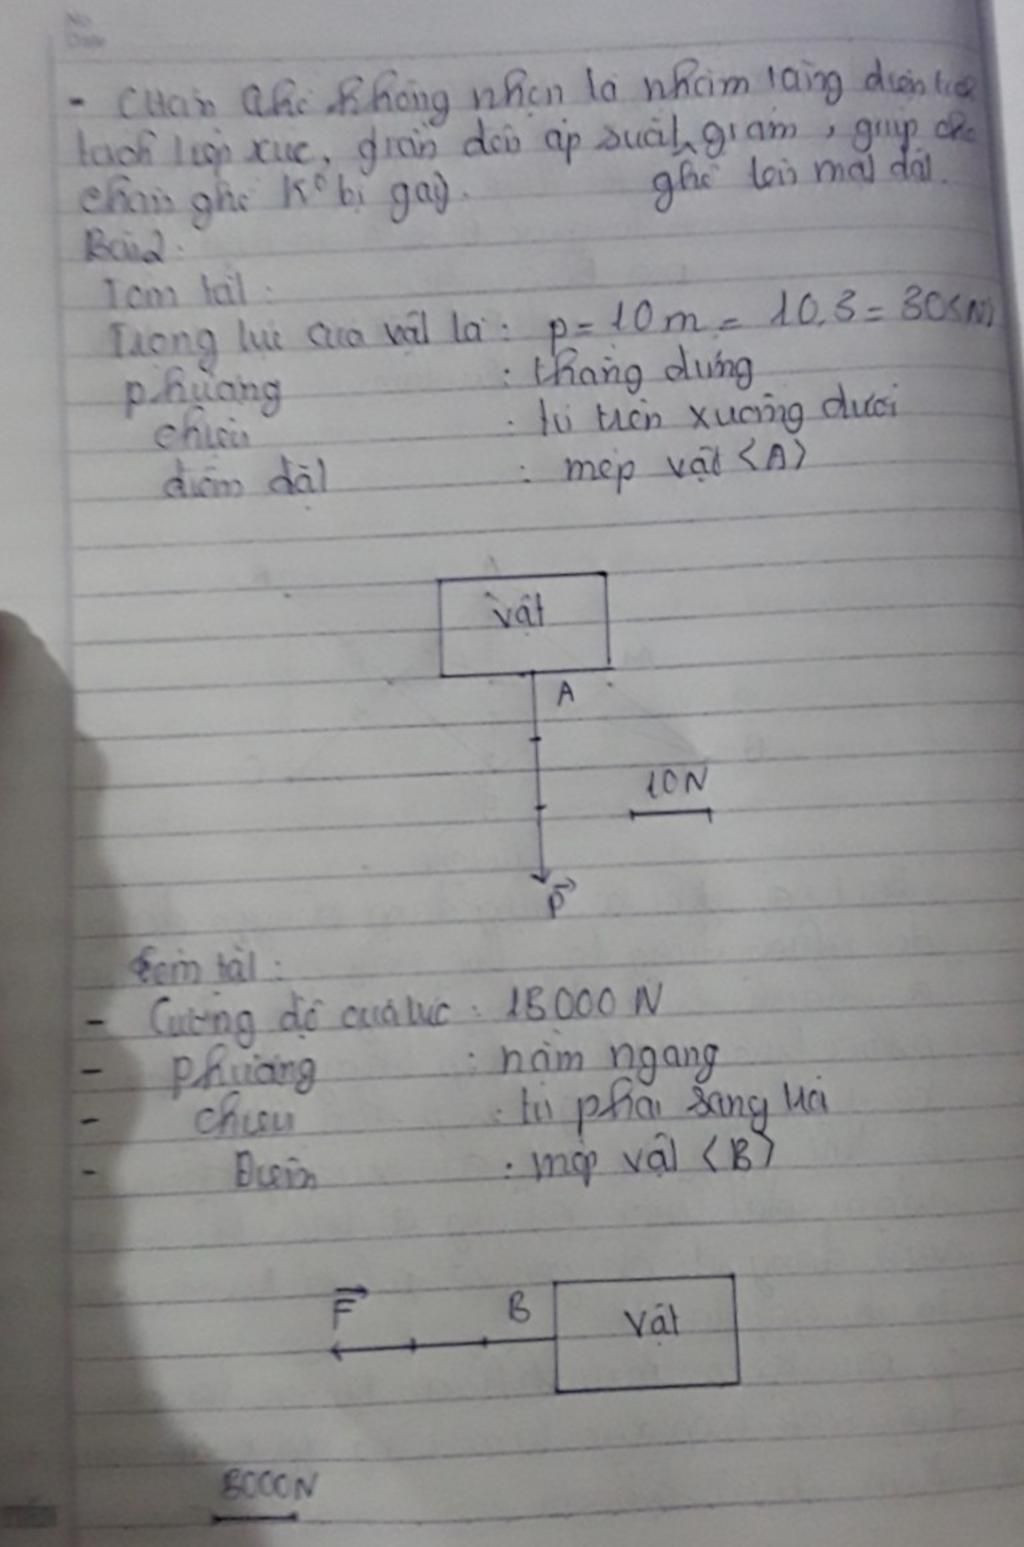 No.
Date
- Chân ghế không nhọn là nhằm tăng diện tích
tách tiếp xúc, dẫn đến áp suất giảm, giúp cho
chân ghế K° bị gãy. ghế lên mặt đất.
Bài 2:
Tóm tắt:
Trọng lực của vật là: p = 10m = 10.3 = 30(N)
phương : thẳng đứng
chiều : từ trên xuống dưới
điểm đặt : mép vật (A)
Vật
A
10N
P
Tóm tắt:
- Cường độ của lực : 15000 N
- phương : nằm ngang
- chiều : từ phải sang trái
- Điểm : mép vật (B)
F B Vật
5000N